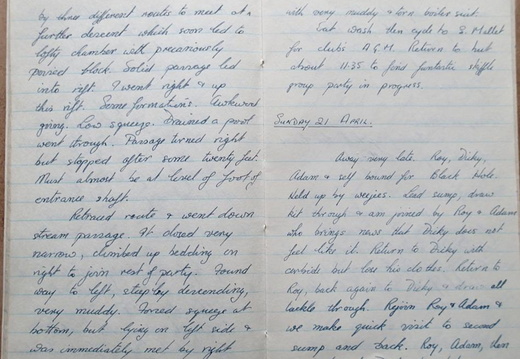 by three different routes to meet at a
further descent which soon led to
lofty chamber with precariously
poised block. Solid passage led
into rift. I went right & up
this rift. Some formations. Awkward
going. Low squeeze. Drained a pool
went through. Passage turned right
but stopped after some twenty feet.
Must almost be at level of foot of
entrance shaft.
Retraced route & went down
stream passage. It closed very
narrow, climbed up bedding on
right to join rest of party. Found
way to left, steeply descending,
very muddy. Forced squeeze at
bottom, but lying on left side &
was immediately met by right
with very muddy & torn boiler suit.
Eat wash then cycle to S. Mallet
for clubs A G M. Return to hut
about 11.35 to find
group party in progress.
SUNDAY 21 APRIL.
Away very late. Roy, Dicky,
Adam & self bound for Black Hole.
Held up by weejies. Lead sump, draw
kit through & am joined by Roy & Adam
who brings news that Dicky does not
feel like it. Return to Dicky with
carbide but lose his clothes. Return to
Roy, back again to Dicky & draw all
tackle through. Rejoin Roy & Adam &
we make quick visit to second
sump and back. Roy, Adam, then